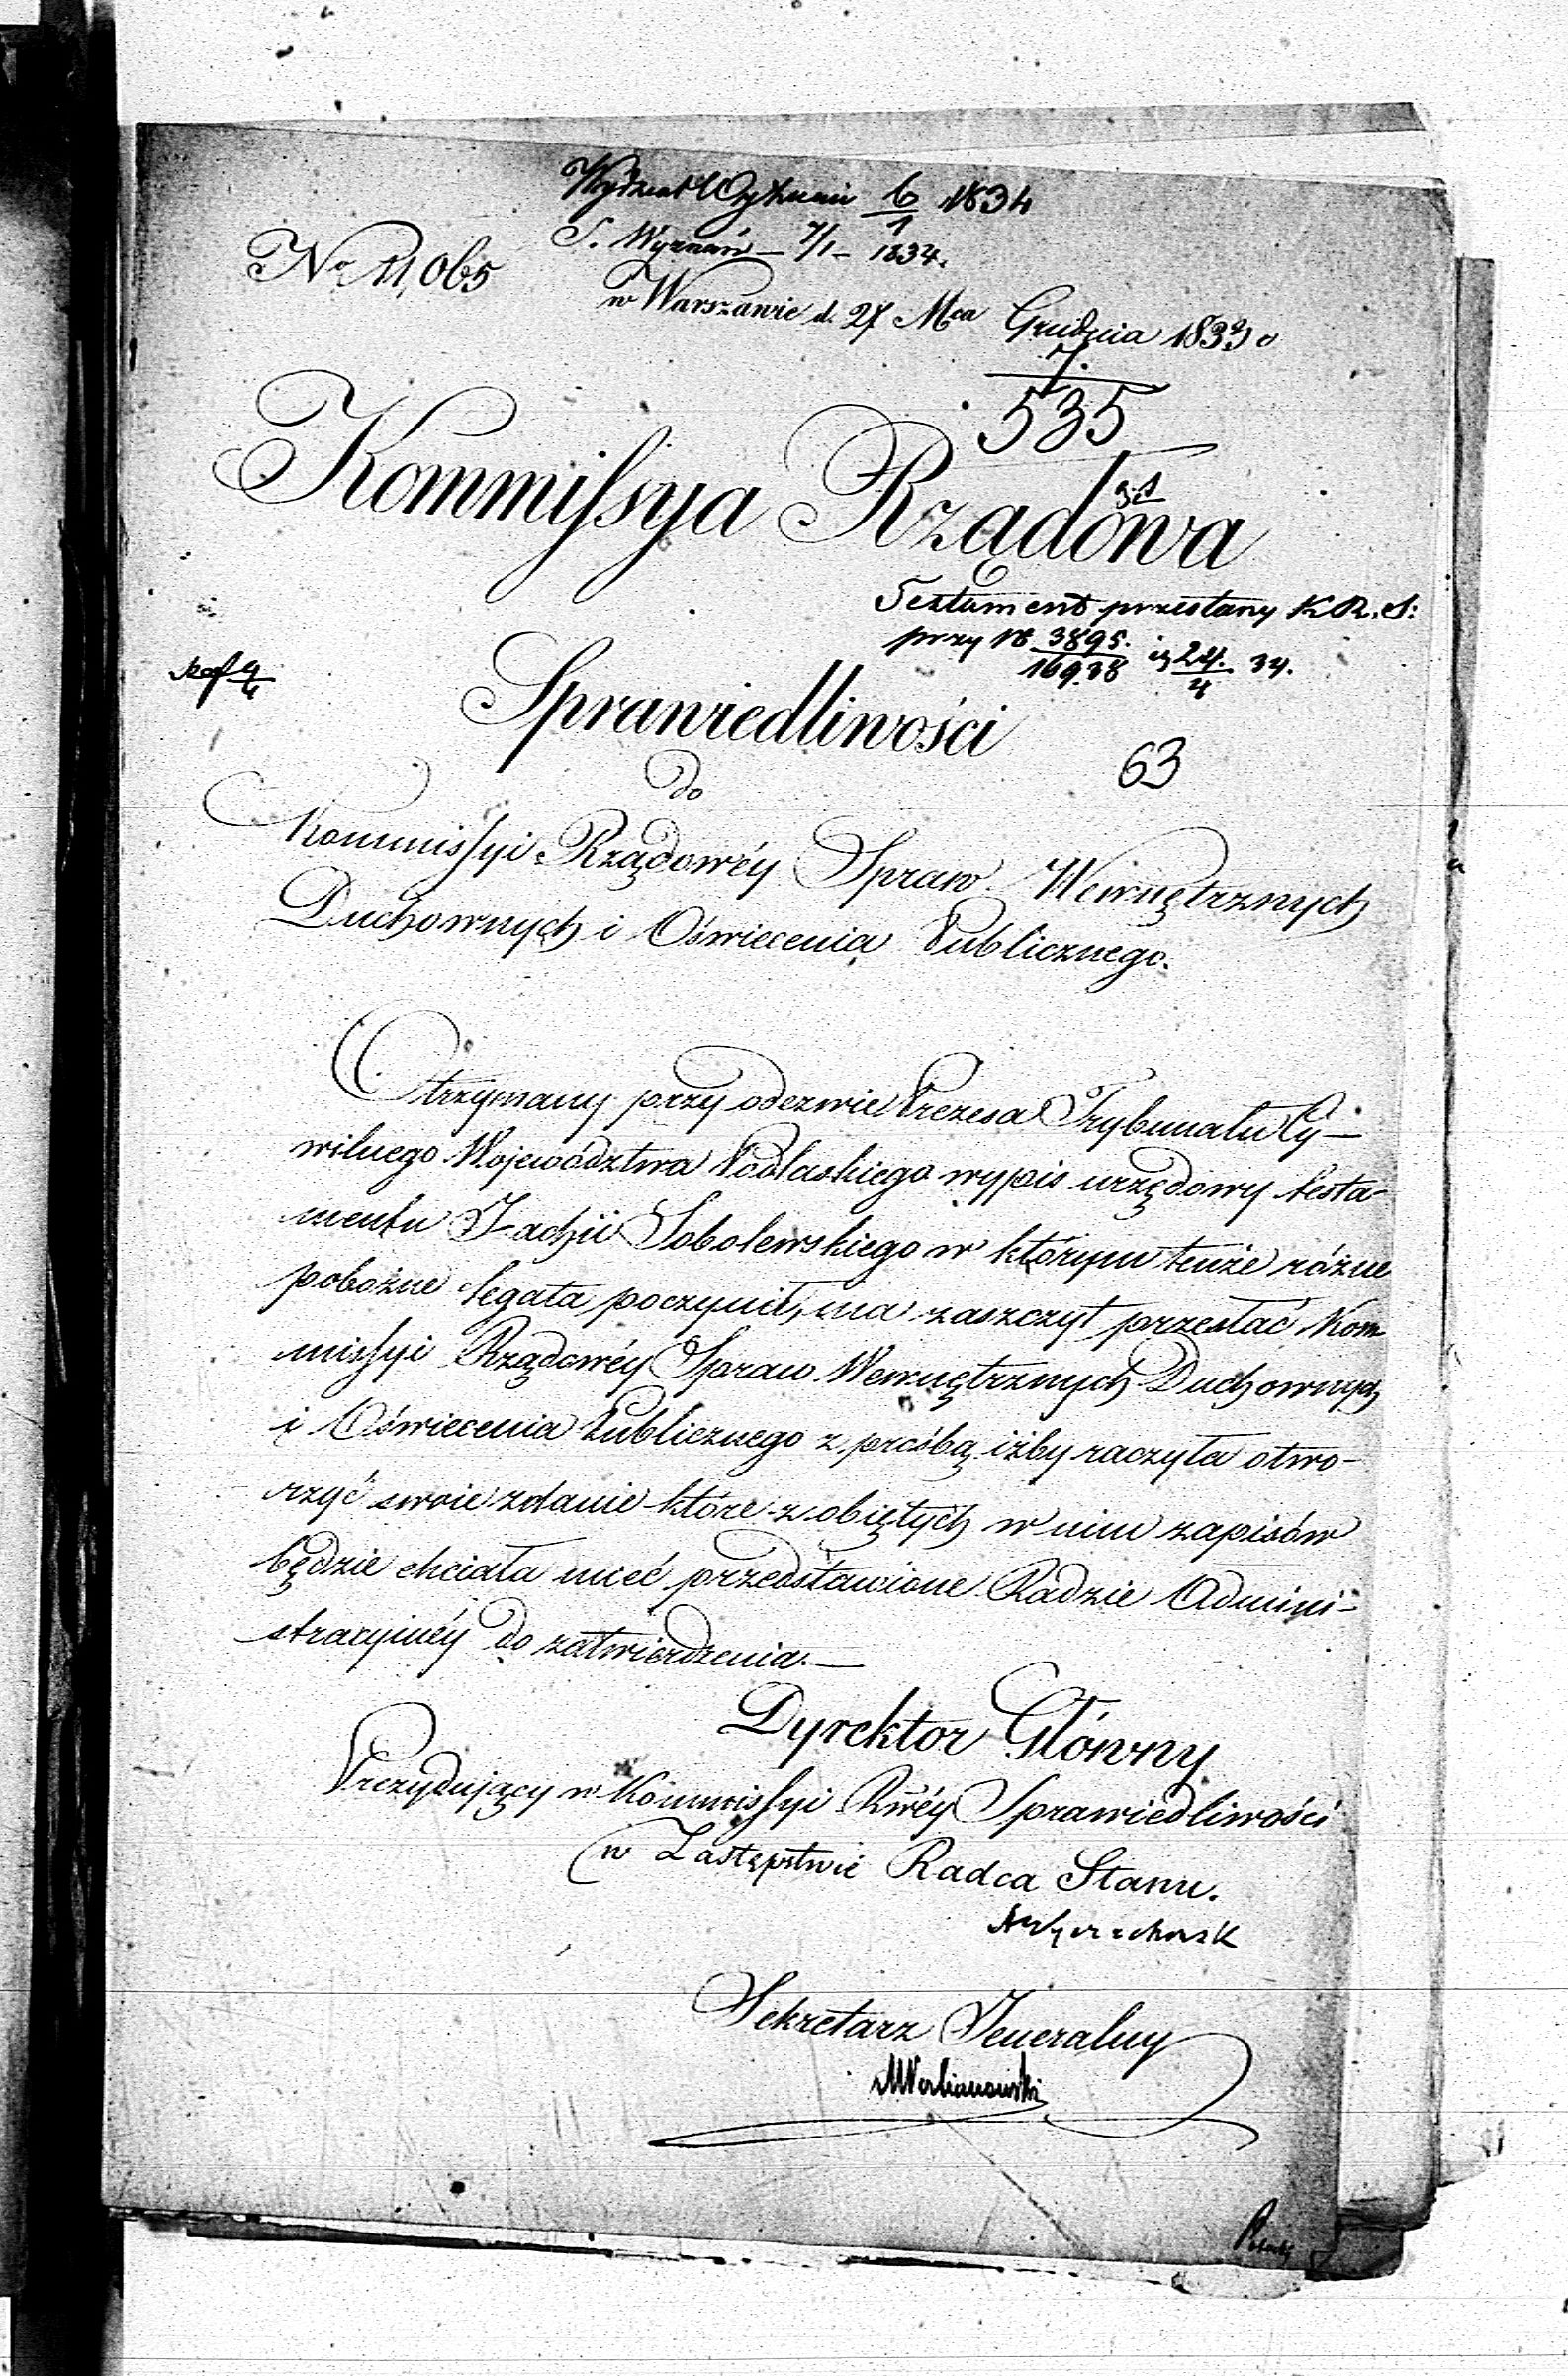 Wydział Wyznań 6/1 1834
S. Wyznań – 7/1 – 1834.
No 11,065
w Warszawie d. 27 Mca Grudnia 1833 o
7.
535
Kommissya Rządowa
Testament przesłany K.R.S:
przy No 3895./16938 i 24./4 34.
Sprawiedliwości
63
do
Kommissyi Rządowéy Spraw Wewnętrznych
Duchownych i Oświecenia Publicznego.
Otrzymany przy odezwie Prezesa Trybunału Cy–
wilnego Województwa Podlaskiego wypis urzędowy testa-
mentu Jachji Sobolewskiego w którym tenże różne
pobożne legata poczynił, ma zaszczyt przesłać Kom
missyi Rządowéy Spraw Wewnętrznych Duchownych
i Oświecenia Publicznego z prośbą iżby raczyła otwo-
rzyć swoie zdanie które z obiętych w nim zapisów
będzie chciała mieć przedstawione Radzie Admini-
stracyinéy do zatwierdzenia.—
Dyrektor Główny
Prezydujący w Kommissyi Rwéy Sprawiedliwości
w Zastępstwie Radca Stanu.
Sekretarz Jeneralny